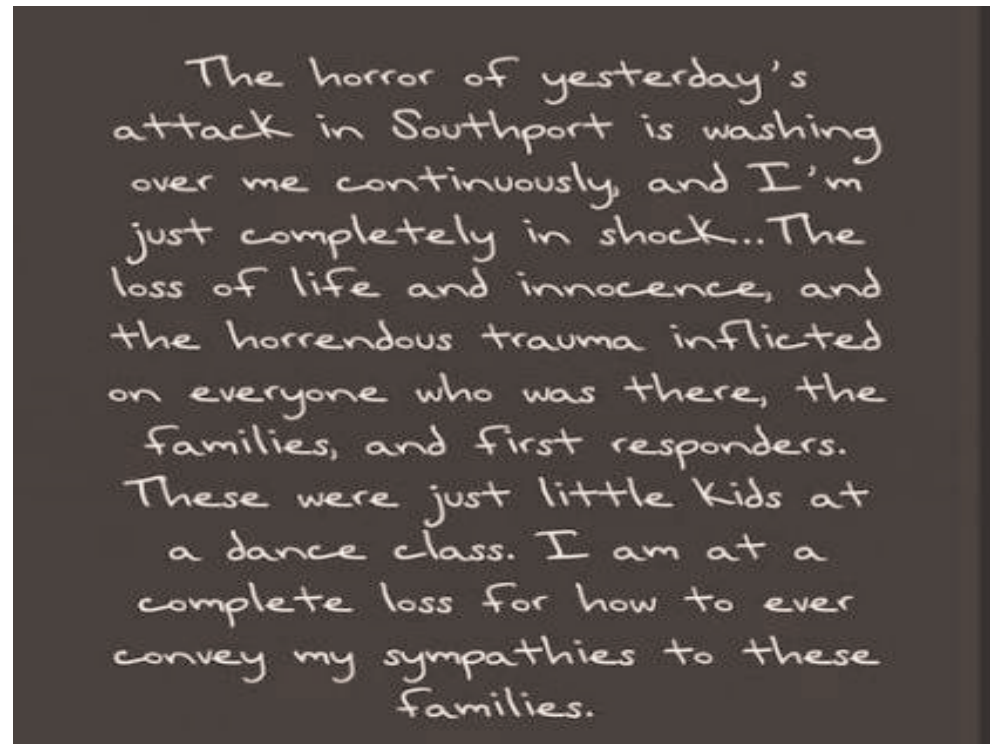 The horror of yesterday's
attack in Southport is washing
over me continuously, and I'm
just completely in shock...The
loss of life and innocence, and
the horrendous trauma inflicted
on everyone who was there, the
families, and first responders.
These were just little kids at
a dance class. I am at a
complete loss for how to ever
convey my sympathies to these
families.